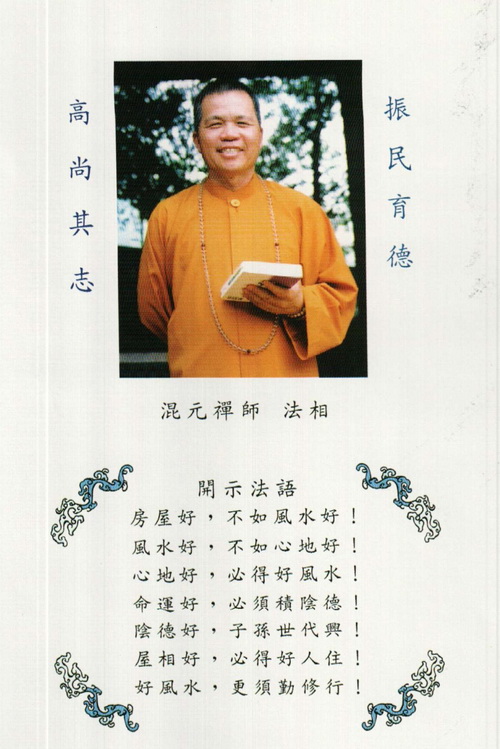 振民育德
高尚其志
混元禪師 法相
開示法語
房屋好，不如風水好！
風水好，不如心地好！
心地好，必得好風水！
命運好，必須積陰德！
陰德好，子孫世代興！
屋相好，必得好人住！
好風水，更須勤修行！